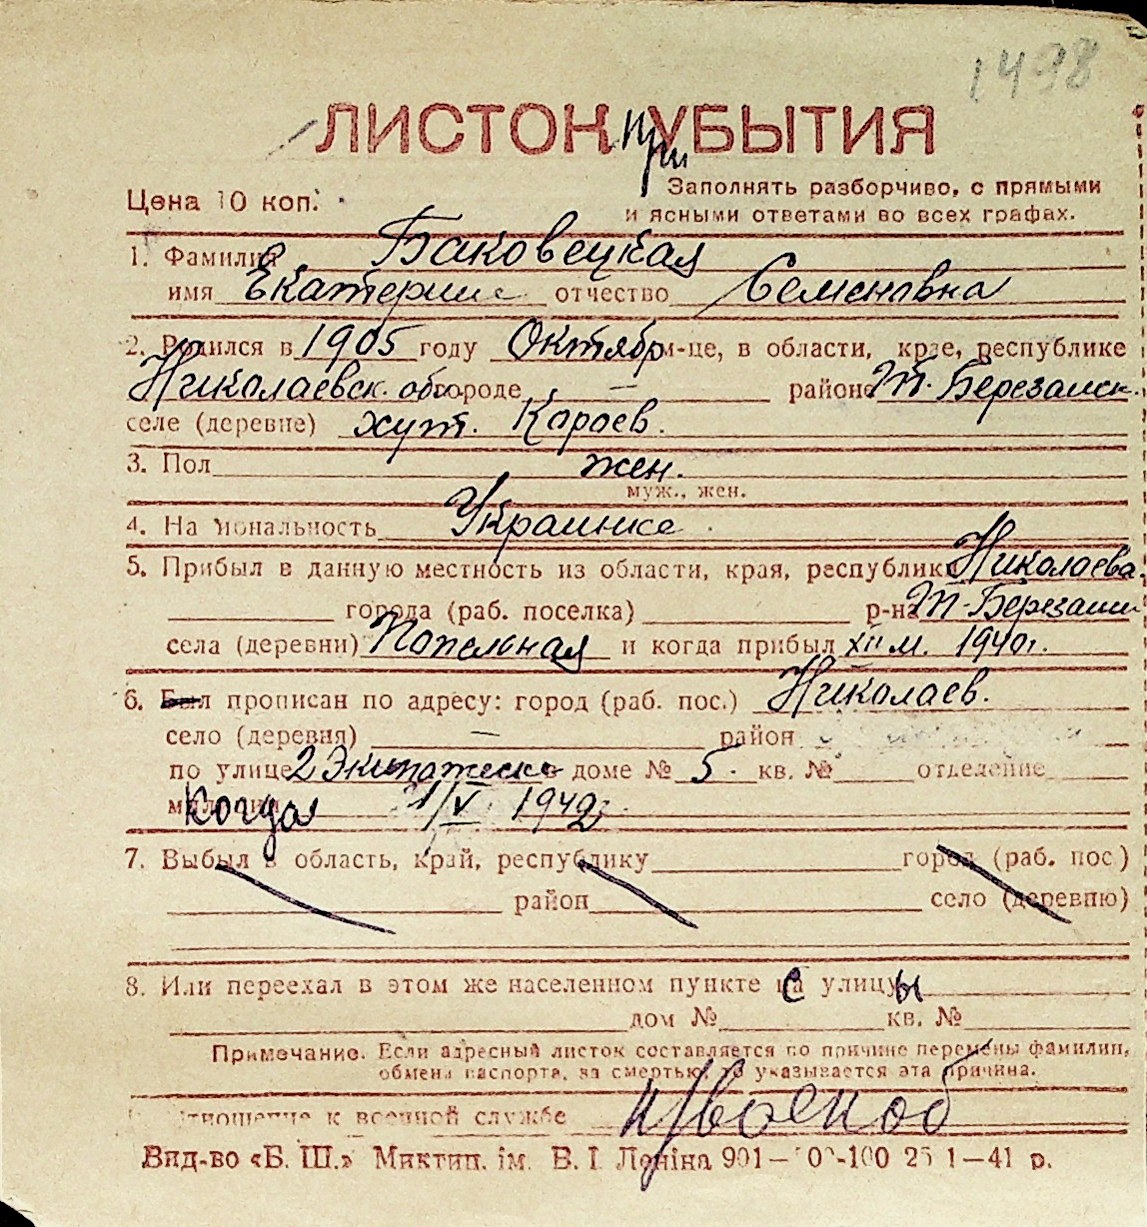 1498
ЛИСТОК при УБЫТИЯ
Цена 10 коп.
Заполнять разборчиво, с прямыми
и ясными ответами во всех графах.
1. Фамилия Баковецкая
имя Екатерина отчество Семеновна
2. Родился в 1905 году Октябр м-це, в области, крае, республике
Николаевск. об городе — районе Т. Березанск.
селе (деревне) хут. Караев.
3. Пол жен.
муж., жен.
4. Национальность Украинка
5. Прибыл в данную местность из области, края, республики Николаева
города (раб. поселка) р-на Т-Березани
села (деревни) Попельная и когда прибыл XII м. 1940г.
6. Был прописан по адресу: город (раб. пос.) Николаев.
село (деревня) — район
по улице 2 Экипажеск в доме № 5. кв. № отделение
милиции Когда 1/V 1942г.
7. Выбыл в область, край, республику город (раб. пос.)
район село (деревню)
8. Или переехал в этом же населенном пункте с улицы
дом № кв. №
Примечание. Если адресный листок составляется по причине перемены фамилии,
обмена паспорта, за смертью, то указывается эта причина.
Отношение к военной службе н/военоб
Вид-во «Б. Ш.» Миктип. ім. В. І. Леніна 901— 00-100 25 1—41 р.